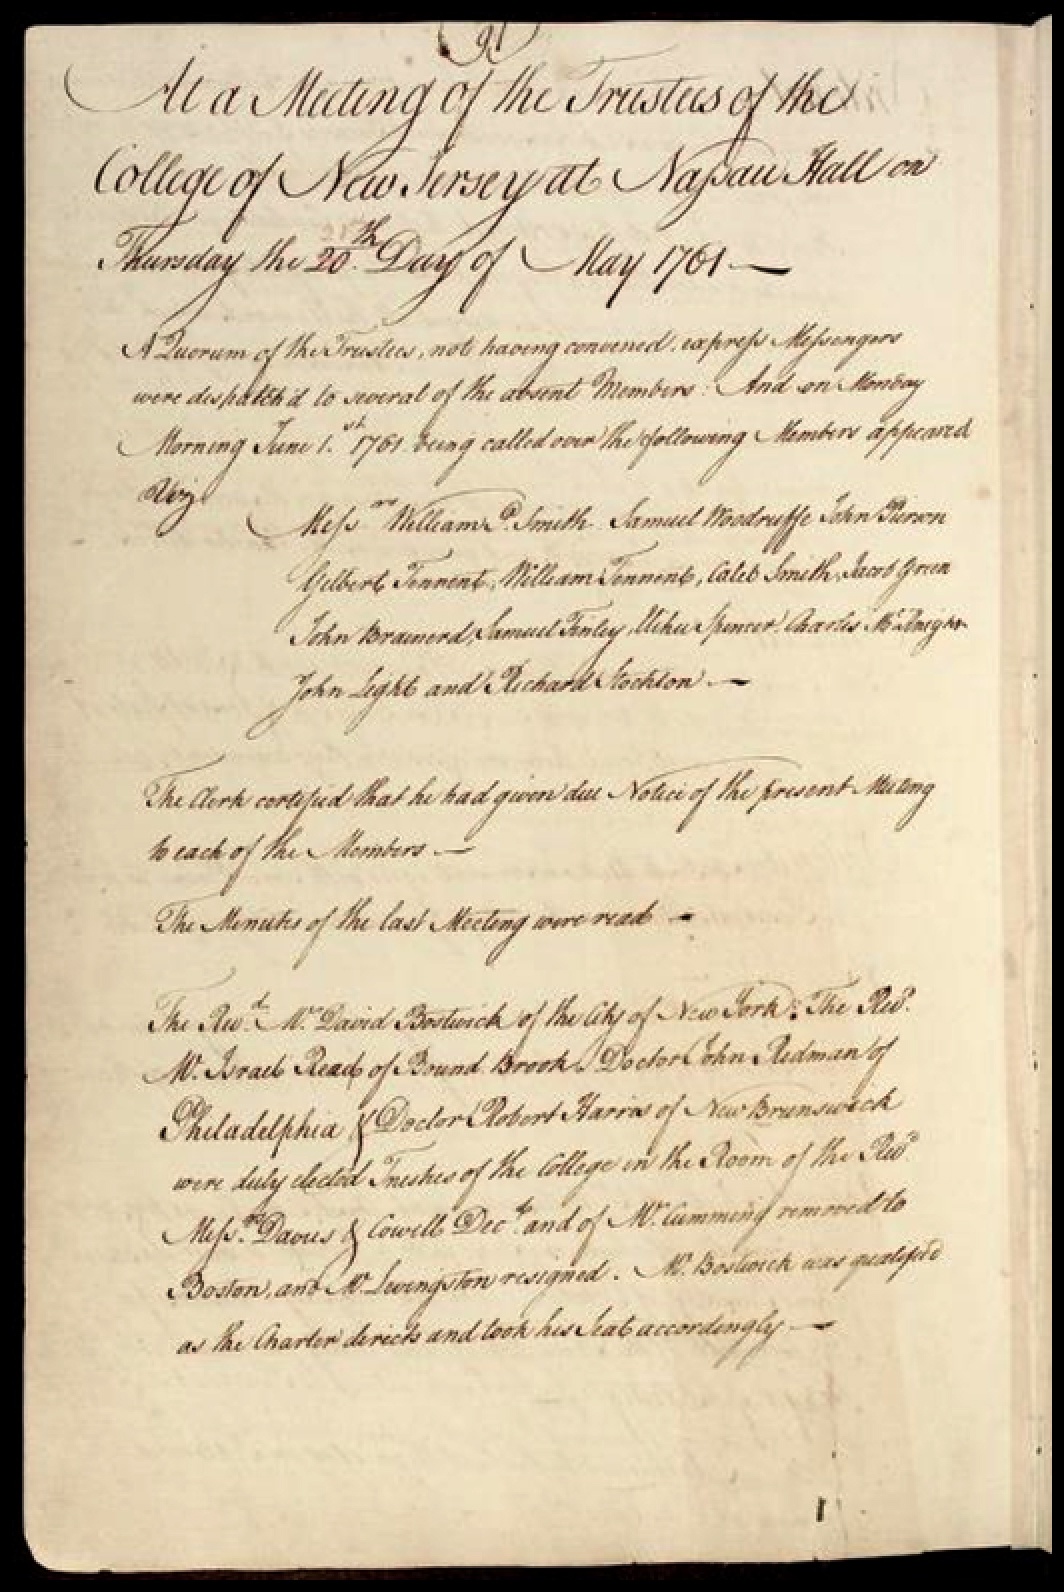 (91)
At a Meeting of the Trustees of the
College of New Jersey at Nassau Hall on
Thursday the 20th. Day of May 1761 —
A Quorum of the Trustees, not having convened, express Messengers
were despatch'd to several of the absent Members: And on Monday
Morning June 1.st 1761 being called over the following Members appeared
Viz.
Messrs William P. Smith Samuel Woodruffe John Pierson
Gilbert Tennent, William Tennent, Caleb Smith, Jacob Green
John Brainerd, Samuel Finley, Elihu Spencer Charles Mc.Knight
John Light and Richard Stockton —
The Clerk certified that he had given due Notice of the present Meeting
to each of the Members —
The Minutes of the last Meeting were read —
The Revd. Mr David Bostwick of the City of New York; The Revd.
Mr. Israel Read of Bound Brook, Doctor John Redman of
Philadelphia & Doctor Robert Harris of New Brunswick
were duly elected Trustees of the College in the Room of the Revd.
Messrs. Davies & Cowell Decd. and of Mr. Cumming removed to
Boston, and Mr. Livingston resigned. Mr. Bostwick was qualified
as the Charter directs and took his Seat accordingly —